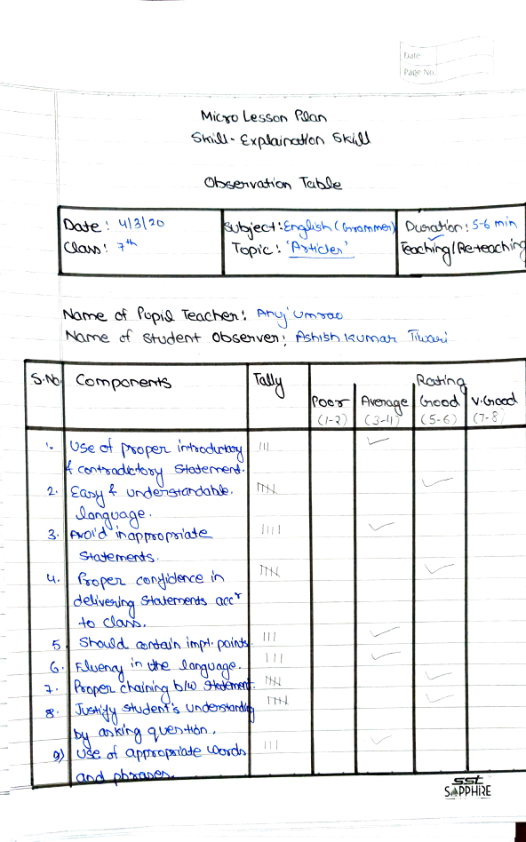 Date
Page No.
Micro Lesson Plan
Skill - Explaination Skill
Observation Table
Date : 4/3/20
Subject : English (Grammer)
Duration : 5-6 min
Class : 7th
Topic : 'Articles'
Teaching/Re-teaching
Name of Pupil Teacher : Anuj umrao
Name of Student Observer : Ashish Kumar Tiwari
S.No Components Tally Rating
Poor Average Good V.Good
(1-2) (3-4) (5-6) (7-8)
1. Use of proper introductory
& contradictory Statement.
2. Easy & understandable.
language.
3. Avoid inappropriate
Statements.
4. Proper confidence in
delivering Statements accr
to class.
5. Should contain impt. points.
6. Fluency in the language.
7. Proper chaining b/w Statement.
8. Justify student's understanding
by asking question.
9) Use of appropriate words
and phrases.
SST
SAPPHIRE